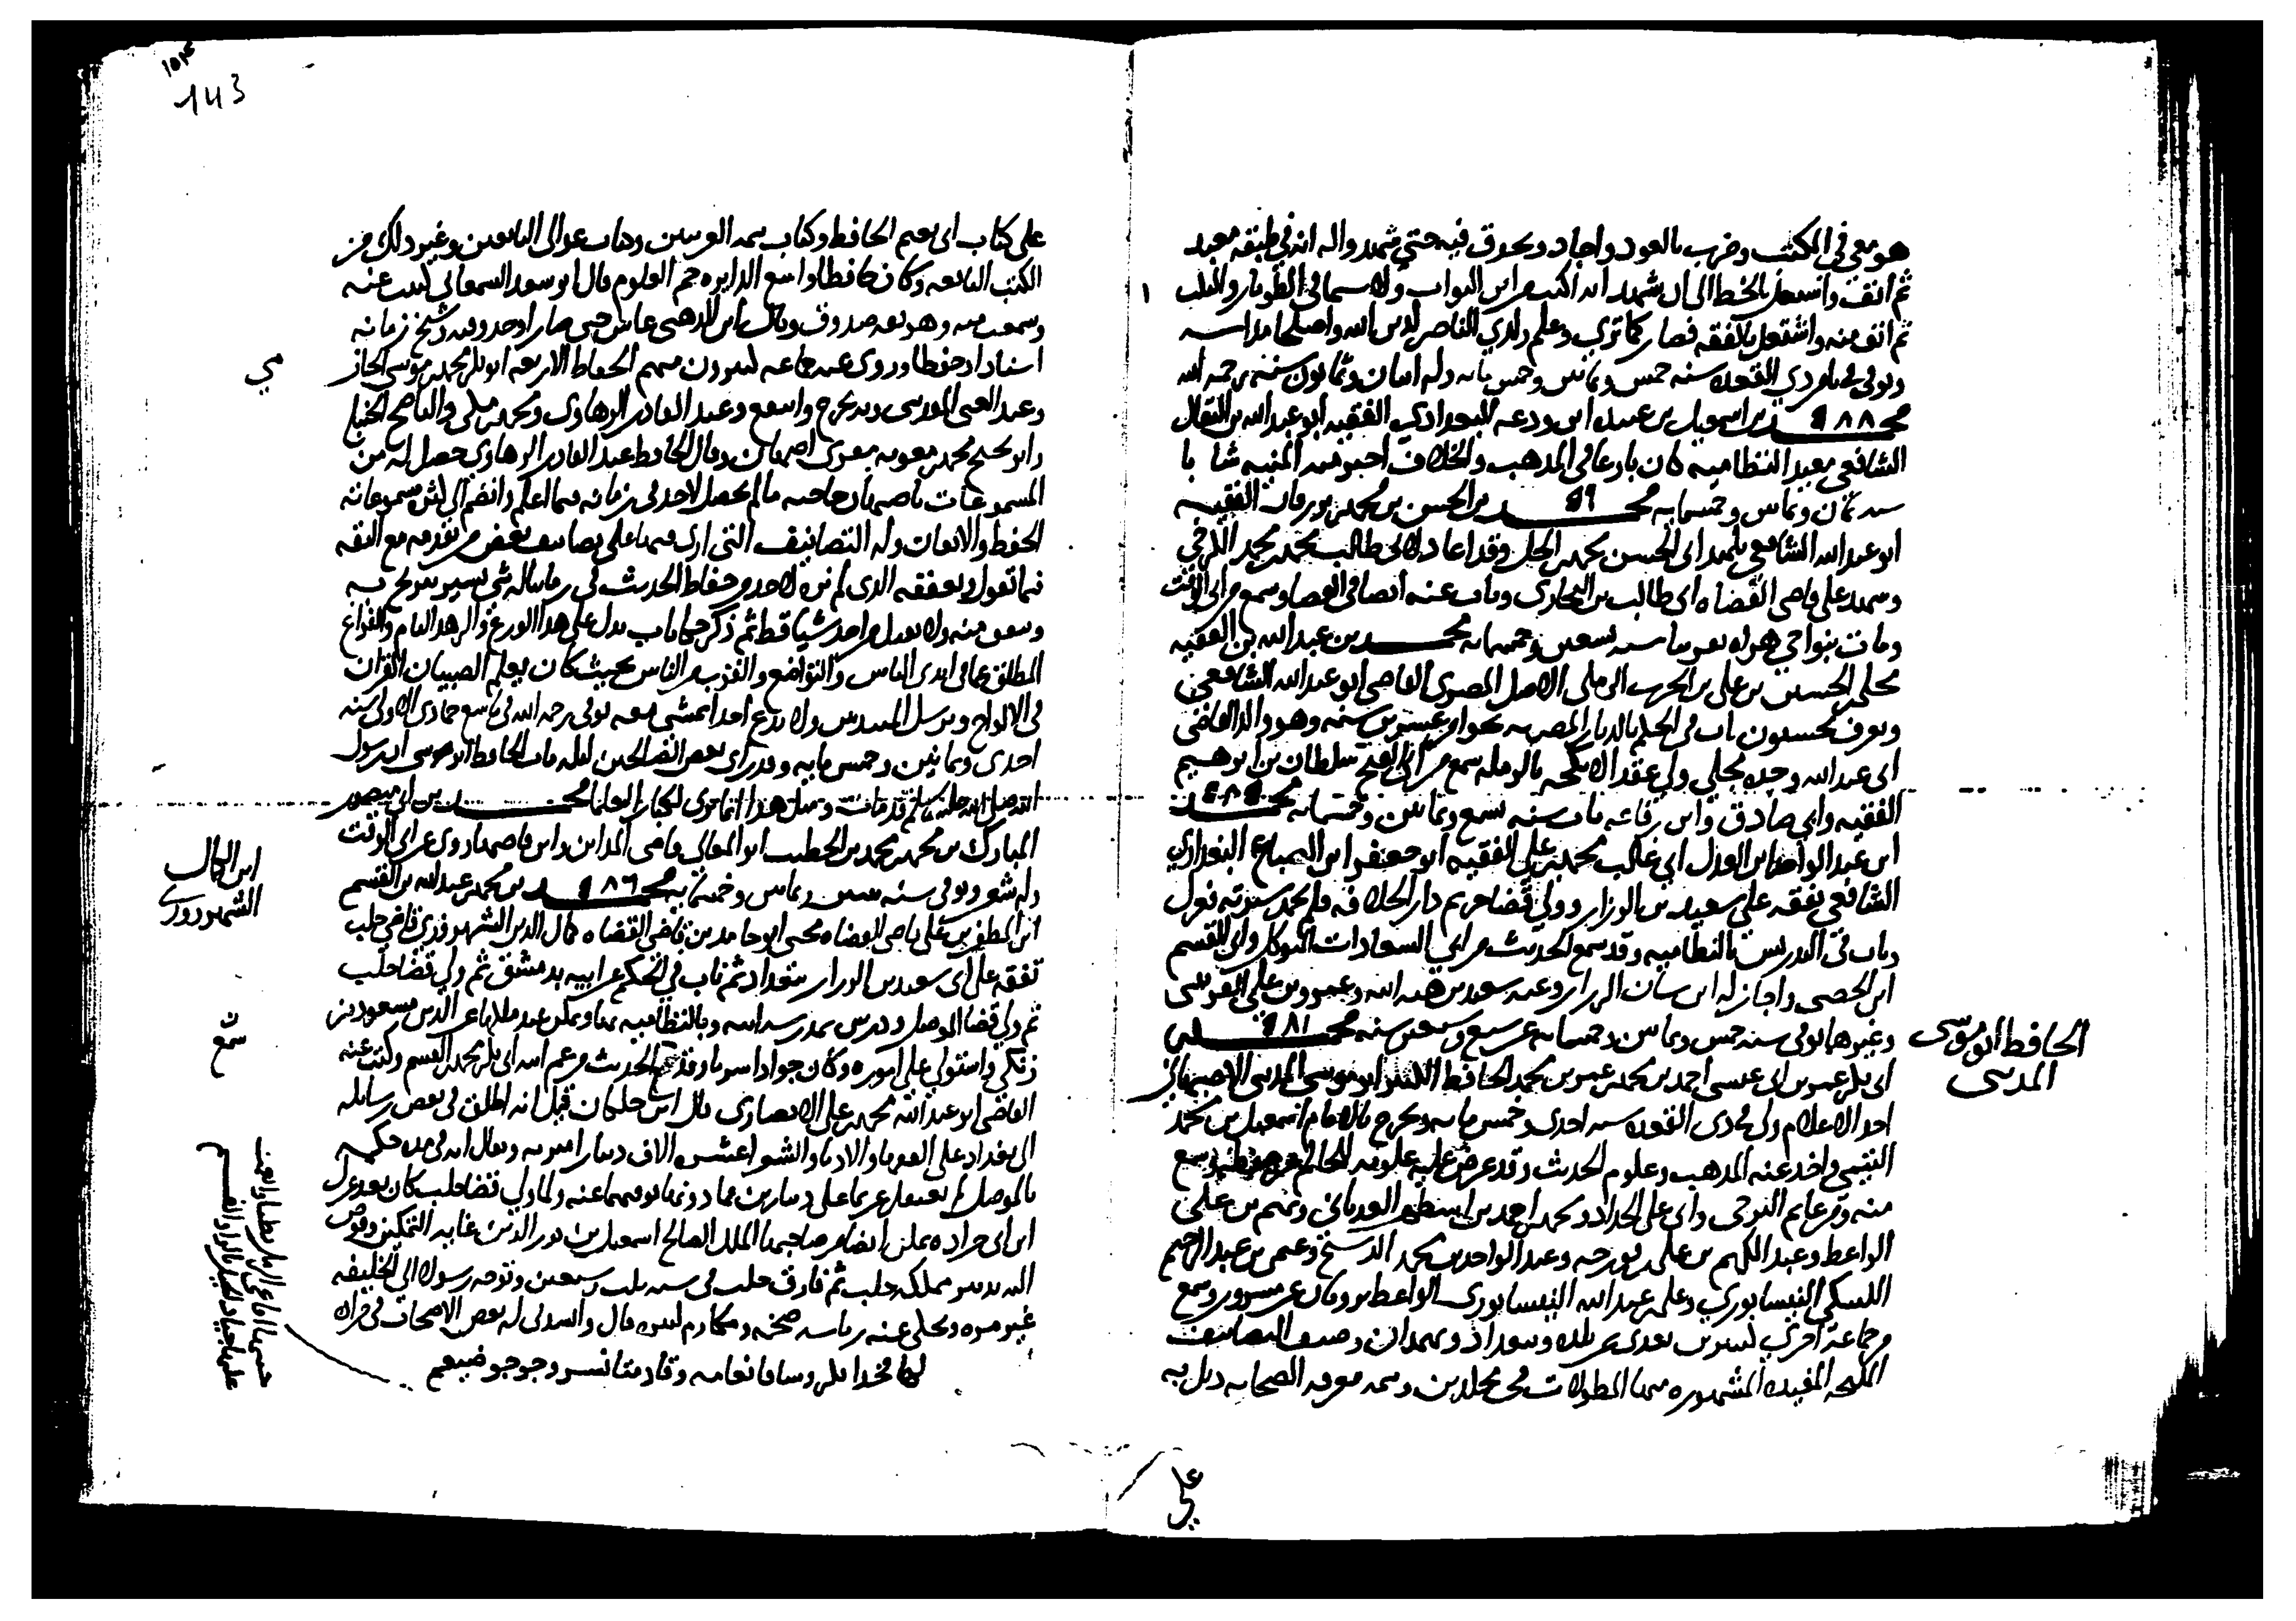 هو معي في المكتب وضرب بالعود واجاد وحذق فيه حتى شهدوا له انه في طبقة معبد
ثم انف واشتغل بالخط الى ان شهد له انه اكتب من ابن البواب ولا سيما في الطومار والثلث
ثم انف منه واشتغل بالفقه فصار كما ترى وعلم ولدي الناصر لدين الله واصلحا مداسه
وتوفي في ذي القعدة سنه خمس وثمانين وخمس مايه وله اثنان وثمانون سنه رحمه الله
محمد بن اسمعيل بن عبيد الله بن ودعه البغدادي الفقيه ابو عبد الله بن البقال
الشافعي معيد النظاميه كان بارعا في المذهب والخلاف اخترمته المنيه شابا
سنه ثمان وثمانين وخمسمايه محمد بن الحسن بن محمد بن الفقيه
ابو عبد الله الشافعي تلميذ ابى الحسن محمد بن الخل وقد اعاد لابي طالب محمد الكرخي
وشهد على قاضي القضاه ابى طالب بن البخاري وناب عنه ايضا في القضا وسمع من ابى الوقت
ومات بنواحي سنه تسعين وخمسمايه محمد بن عبد الله بن الفقيه
مجلي بن الحسين بن علي بن الحرث الرملي الاصل المصري القاضي ابو عبد الله الشافعي
ناب في الحكم بالديار المصريه نحوا من عشرين سنه وهو والد القاضي
ابى عبد الله وجده مجلي ولي عقد الانكحه بالرمله سمع من ابى الفتح سلطان بن ابرهيم
الفقيه وابي صادق وابن رفاعه مات سنه سبع وثمانين وخمسمايه محمد
ابن عبد الواحد ابن العدل ابي غالب محمد بن علي الفقيه ابو جعفر ابن الصباغ البغدادي
الشافعي تفقه على سعيد بن الرزاز وولي قضا حريم دار الخلافه فلم تحمد سيرته فعزل
وناب في التدريس بالنظاميه وقد سمع الحديث من ابي السعادات المتوكلي وابن القسم
ابن الحصين واجاز له ابن بيان الرزاز وعنه سعيد بن هبه الله وعمرو بن علي القرشي
وغيرهما توفي سنه خمس وثمانين وخمسمايه عن سبع وسبعين سنه محمد بن
ابى بكر عمر بن ابى عيسى احمد بن محمد بن عمر بن محمد الحافظ الكبير ابو موسى المديني الاصبهاني
احد الاعلام ولد في ذي القعده سنه احدى وخمس مايه وتخرج بالامام اسمعيل بن محمد
التيمي واخذ عنه المذهب وعلوم الحديث وقد عرض عليه علوم الحديث للحاكم من حفظه وسمع
منه ومن غانم البرجي وابى علي الحداد ومحمد بن احمد بن وتميم بن علي
الواعظ وعبد الكريم بن علي بن فورجه وعبد الواحد بن محمد الدشتج وعمر بن عبد الرحيم
النيسابوري وعلي بن عبد الله النيسابوري الواعظ وسمع
من جماعة اخرين ببلده وبغداد وبهمدان وصنف التصانيف
المليحه المفيده المشهوره منها المطولات في مجلدين ومنه معرفه الصحابه ذيل به
الحافظ ابو موسى
المديني
علي
143
على كتاب ابى نعيم الحافظ وكتاب تتمه الغريبين وكتاب عوالي التابعين وغير ذلك من
الكتب النافعه وكان حافظا واسع الدايره جم العلوم قال ابو سعد السمعاني كتبت عنه
وسمعت منه وهو ثقه صدوق وقال ابن الدبيثي عاش حتى صار اوحد وقته وشيخ زمانه
اسنادا وحفظا وروى عنه جماعه كثيرون منهم الحفاظ الاربعه ابو بكر محمد بن موسى الحازمي
وعبد الغني المقدسي وبه تخرج وانتفع وعبد القادر الرهاوي ومحمد بن مكي والناصح الحنبلي
وابو نجيح محمد بن معويه مقري اصبهان وقال الحافظ عبد القادر الرهاوي حصل له من
المسموعات باصبهان خاصه ما لم يحصل لاحد في زمانه فيما اعلم وانضم الى كثره مسموعاته
الحفظ والاتقان وله التصانيف التي اربى فيها على تصانيف بعض من تقدمه مع الثقه
فيما يقول وتعففه الذي لم نره لاحد من حفاظ الحديث في زماننا له شي يسير يتربح به
وينفق منه ولا يقبل من احد شيا قط ثم ذكر حكايات تدل على هذا الورع والزهد التام والفراغ
المطلق عما في ايدي الناس والتواضع والقرب من الناس بحيث كان يعلم الصبيان القران
في الالواح ولا يدع احدا يمشي معه توفي رحمه الله في تاسع جمادى الاولى سنه
احدى وثمانين وخمس مايه وقد راى بعض الصالحين ليله مات الحافظ ابو موسى ان رسول
الله صلى الله عليه وسلم قد مات ومثل هذا انما يرى لكبار العلما محمد بن ابى منصور
المبارك بن محمد بن محمد بن الخطيب ابو المعالي قاضي المداين وابن قاضيها روى عن ابى الوقت
وله شعر وتوفي سنه وثمانين وخمسمايه محمد بن محمد بن عبد الله بن القسم
ابن المظفر بن علي قاضي القضاه محيي ابو حامد بن قاضي القضاه كمال الدين الشهرزوري قاضي حلب
تفقه على ابى سعيد بن الرزاز ببغداد ثم ناب في الحكم عن ابيه بدمشق ثم ولي قضا حلب
ثم ولي قضا الموصل ودرس بمدرسه ابيه وبالنظاميه بها وتمكن عند ملكها عز الدين مسعود بن
زنكي واستولى على اموره وكان جوادا سريا وقد سمع الحديث من عم ابيه ابى بكر محمد بن القسم وكتب عنه
القاضي ابو عبد الله محمد بن علي الانصاري قال ابن خلكان قيل انه اطلق في بعض رسايله
الى بغداد على الفقها والادبا والشعرا عشره الاف دينار اميريه ويقال انه في مده حكمه
بالموصل لم يعتقل غريما على دينارين فما دونهما يوفيهما عنه ولما ولي قضا حلب كان بعد عزل
ابن ابى جراده تمكن ايضا من صاحبها الملك الصالح اسمعيل بن نور الدين غايه التمكن وفوض
اليه تدبير مملكه حلب ثم فارق حلب في سنه ثلث وسبعين وتوجه رسولا الى الخليفه
غير مره وتحكى عنه رياسه ضخمه ومكارم كثيره قال وانشدني له بعض الاصحاب في جراده
لها فخذا بكر وساقا نعامه وقادمتا نسر وجوجو ضيغم
ابن الكمال
الشهرزوري